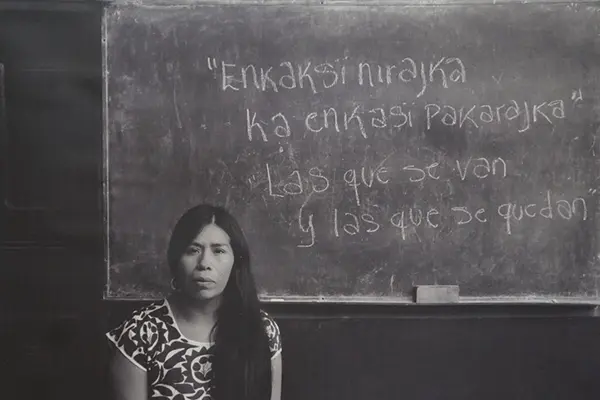 "Enkaksï nirajka
ka enkasi Pakarajka"
"Las que se van
y las que se quedan"